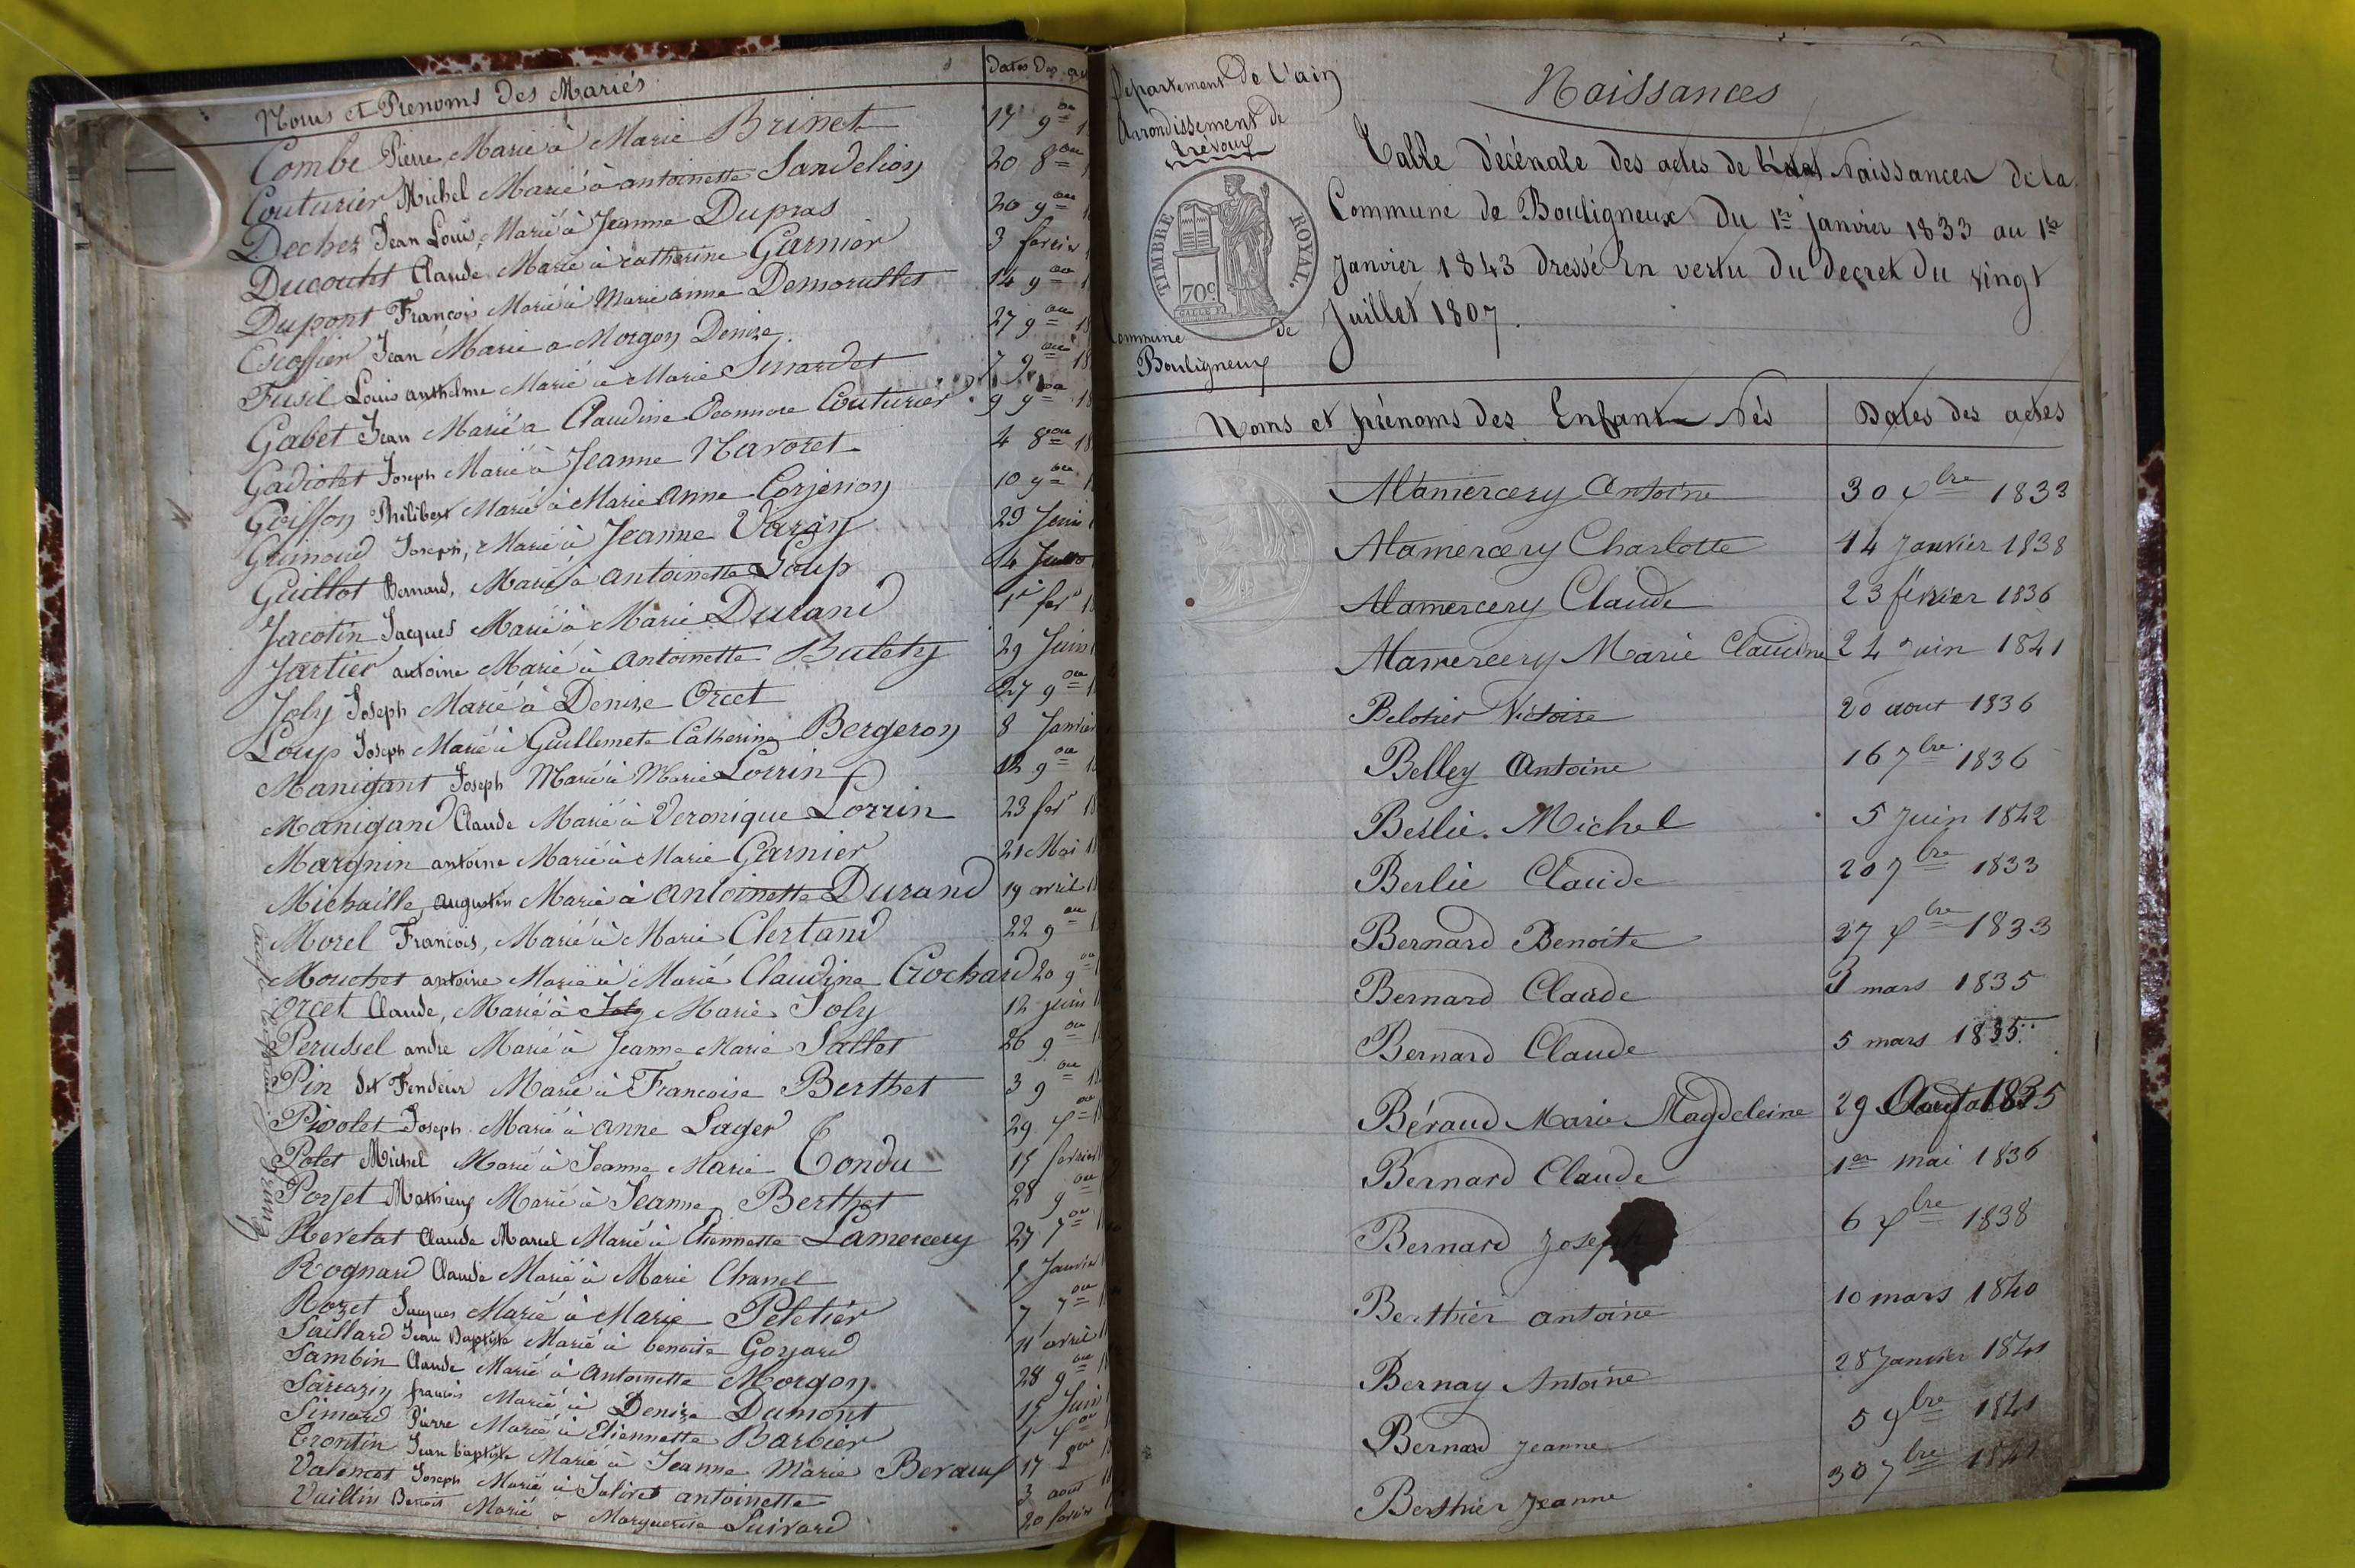 Noms et Prenoms Des Mariés
Dates Des
Combe Pierre, Marié à Marie Brinet 17 9
Couturier Michel Marié à antoinette Sandelion 20 8
Dechez Jean Louis, Marié à Jeanne Dupras 20 9
Ducoutet Claude Marié à catherine Garnier 3
Dupont François Marié à Marie anne 14 9
Escoffier Jean Marié a Morgon Denise 27 9
Fusil Louis anthelme Marié à Marie 7 9
Gabet Jean Marié a Claudine Couturier 9 9
Gadiolet Joseph Marié à Jeanne Navoret 4 8
Goiffon Philibert Marié à Marie Anne Corjenon 10 9
Grimoud Joseph, Marié à Jeanne Varay 29 Juin
Guillot Bernard, Marié à Antoinette Loup 14
Jacotin Jacques Marié à Marie Durand 1r fer
Jartier antoine Marié à Antoinette Bulety 29 Juin
Joly Joseph Marié à Denise Orcet 27 9
Loup Joseph Marié à Guillemete Catherine Bergeron 8 Janvier
Manigant Joseph Marié à Marie Lorrin 12 9
Manigand Claude Marié à Veronique Lorrin 23
Margnin antoine Marié à Marie Garnier 21 Mai
Michaille, Augustin Marié à Antoinette Durand 19 avril
Morel François, Marié à Marie Clertand 22 9
Mouchet antoine Marié à Marie Claudine Crochard 20 9
Orcet Claude, Marié à Joly Marie Joly 12 juin
Perussel andré Marié à Jeanne Marie Sallet 26 9
Pin dit Fendeur Marié à Francoise Berthet 3 9
Pivolet Joseph Marié à Anne Lager 29
Polet Michel Marié à Jeanne Marie Tondu 15
Porjet Mathieu Marié à Jeanne Berthet 28 9
Revetat Claude Marcel Marié à Etiennette Lamercery 27 7
Rognard Claude Marié à Marie Chanel Janvier
Rozet Jacques Marié à Marie Peletier 7 7
Saillard Jean Baptiste Marié à benoite Goyard 11 avril
Sambin Claude Marié à Antoinette Morgon 28 9
Sarrazin francois Marié à Denise Dumont 15 Juin
Simard Pierre Marié à Etiennette Barbier
Trontin Jean baptiste Marié à Jeanne Marie Beraud 17
Valencot Joseph Marié à Jolivet antoinette 3 aout
Vuillin Benoit Marié a Marguerite Suivard 20
Departement de l'ain
Arrondissement de
trévoux
TIMBRE ROYAL
70c
Commune de
Bouligneux
Naissances
Table décénale des actes de Naissances de la
Commune de Bouligneux du 1er janvier 1833 au 1er
Janvier 1843 dressé En vertu du decret du vingt
Juillet 1807.
Noms et prénoms des Enfants Nés Dates des actes
Alamercery Antoine 30 xbre 1833
Alamercery Charlotte 14 Janvier 1838
Alamercery Claude 23 février 1836
Alamercery Marie Claudine 24 juin 1841
Belotier Victoire 20 aout 1836
Belley Antoine 16 7bre 1836
Beslie. Michel 5 Juin 1842
Berlie Claude 20 7bre 1833
Bernard Benoite 27 xbre 1833
Bernard Claude 3 mars 1835
Bernard Claude 5 mars 1835
Béraud Marie Magdeleine 29 Aout 1835
Bernard Claude 1er mai 1836
Bernard Joseph 6 xbre 1838
Berthier antoine 10 mars 1840
Bernay Antoine 28 Janvier 1841
Bernard Jeanne 5 9bre 1841
Berthier Jeanne 30 7bre 1841